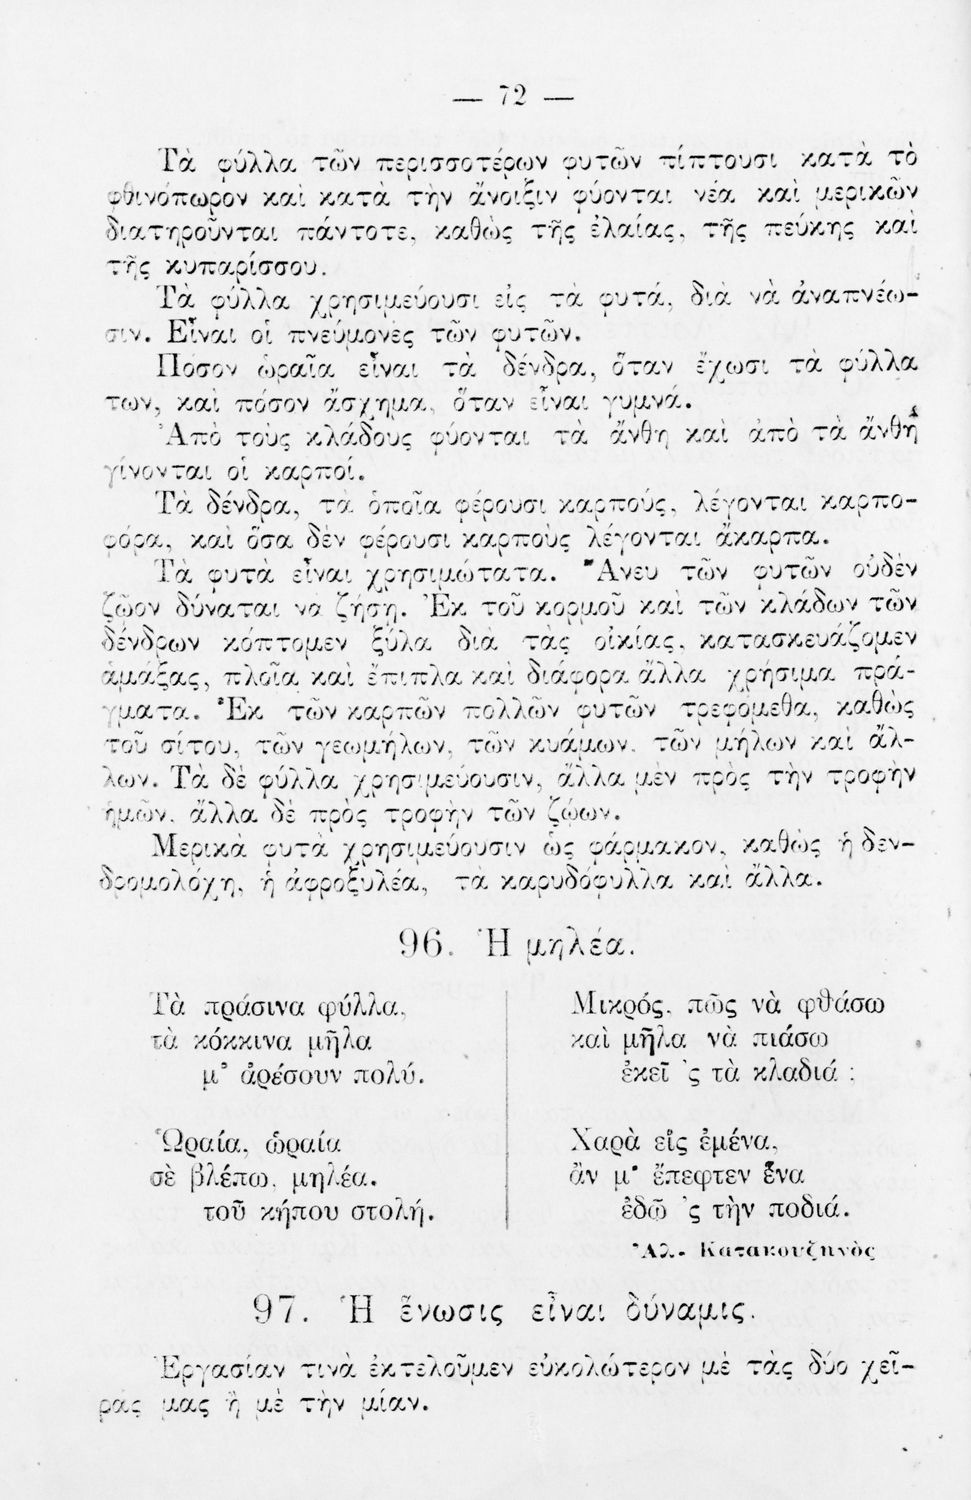 — 72 —
Τὰ φύλλα τῶν περισσοτέρων φυτῶν πίπτουσι κατὰ τὸ
φθινόπωρον καὶ κατὰ τὴν ἄνοιξιν φύονται νέα καὶ μερικῶν
διατηροῦνται πάντοτε, καθὼς τῆς ἐλαίας, τῆς πεύκης καὶ
τῆς κυπαρίσσου.
Τὰ φύλλα χρησιμεύουσι εἰς τὰ φυτά, διὰ νὰ ἀναπνέω-
σιν. Εἶναι οἱ πνεύμονες τῶν φυτῶν.
Πόσον ὡραῖα εἶναι τὰ δένδρα, ὅταν ἔχωσι τὰ φύλλα
των, καὶ πόσον ἄσχημα, ὅταν εἶναι γυμνά.
Ἀπὸ τοὺς κλάδους φύονται τὰ ἄνθη καὶ ἀπὸ τὰ ἄνθη
γίνονται οἱ καρποί.
Τὰ δένδρα, τὰ ὁποῖα φέρουσι καρπούς, λέγονται καρπο-
φόρα, καὶ ὅσα δὲν φέρουσι καρποὺς λέγονται ἄκαρπα.
Τὰ φυτὰ εἶναι χρησιμώτατα. Ἄνευ τῶν φυτῶν οὐδὲν
ζῷον δύναται νὰ ζήσῃ. Ἐκ τοῦ κορμοῦ καὶ τῶν κλάδων τῶν
δένδρων κόπτομεν ξύλα διὰ τὰς οἰκίας, κατασκευάζομεν
ἁμάξας, πλοῖα καὶ ἔπιπλα καὶ διάφορα ἄλλα χρήσιμα πρά-
γματα. Ἐκ τῶν καρπῶν πολλῶν φυτῶν τρεφόμεθα, καθὼς
τοῦ σίτου, τῶν γεωμήλων, τῶν κυάμων, τῶν μήλων καὶ ἄλ-
λων. Τὰ δὲ φύλλα χρησιμεύουσιν, ἄλλα μὲν πρὸς τὴν τροφὴν
ἡμῶν, ἄλλα δὲ πρὸς τροφὴν τῶν ζῴων.
Μερικὰ φυτὰ χρησιμεύουσιν ὡς φάρμακον, καθὼς ἡ δεν-
δρομολόχη, ἡ ἀφροξυλέα, τὰ καρυδόφυλλα καὶ ἄλλα.
96. Ἡ μηλέα.
Τὰ πράσινα φύλλα,
τὰ κόκκινα μῆλα
μ' ἀρέσουν πολύ.
Ὡραία, ὡραία
σὲ βλέπω, μηλέα.
τοῦ κήπου στολή.
Μικρός, πῶς νὰ φθάσω
καὶ μῆλα νὰ πιάσω
ἐκεῖ 'ς τὰ κλαδιά ;
Χαρὰ εἰς ἐμένα,
ἂν μ' ἔπεφτεν ἕνα
ἐδῶ 'ς τὴν ποδιά.
Ἀλ. Κατακουζηνὸς
97. Ἡ ἕνωσις εἶναι δύναμις.
Ἐργασίαν τινὰ ἐκτελοῦμεν εὐκολώτερον μὲ τὰς δύο χεῖ-
ράς μας ἢ μὲ τὴν μίαν.